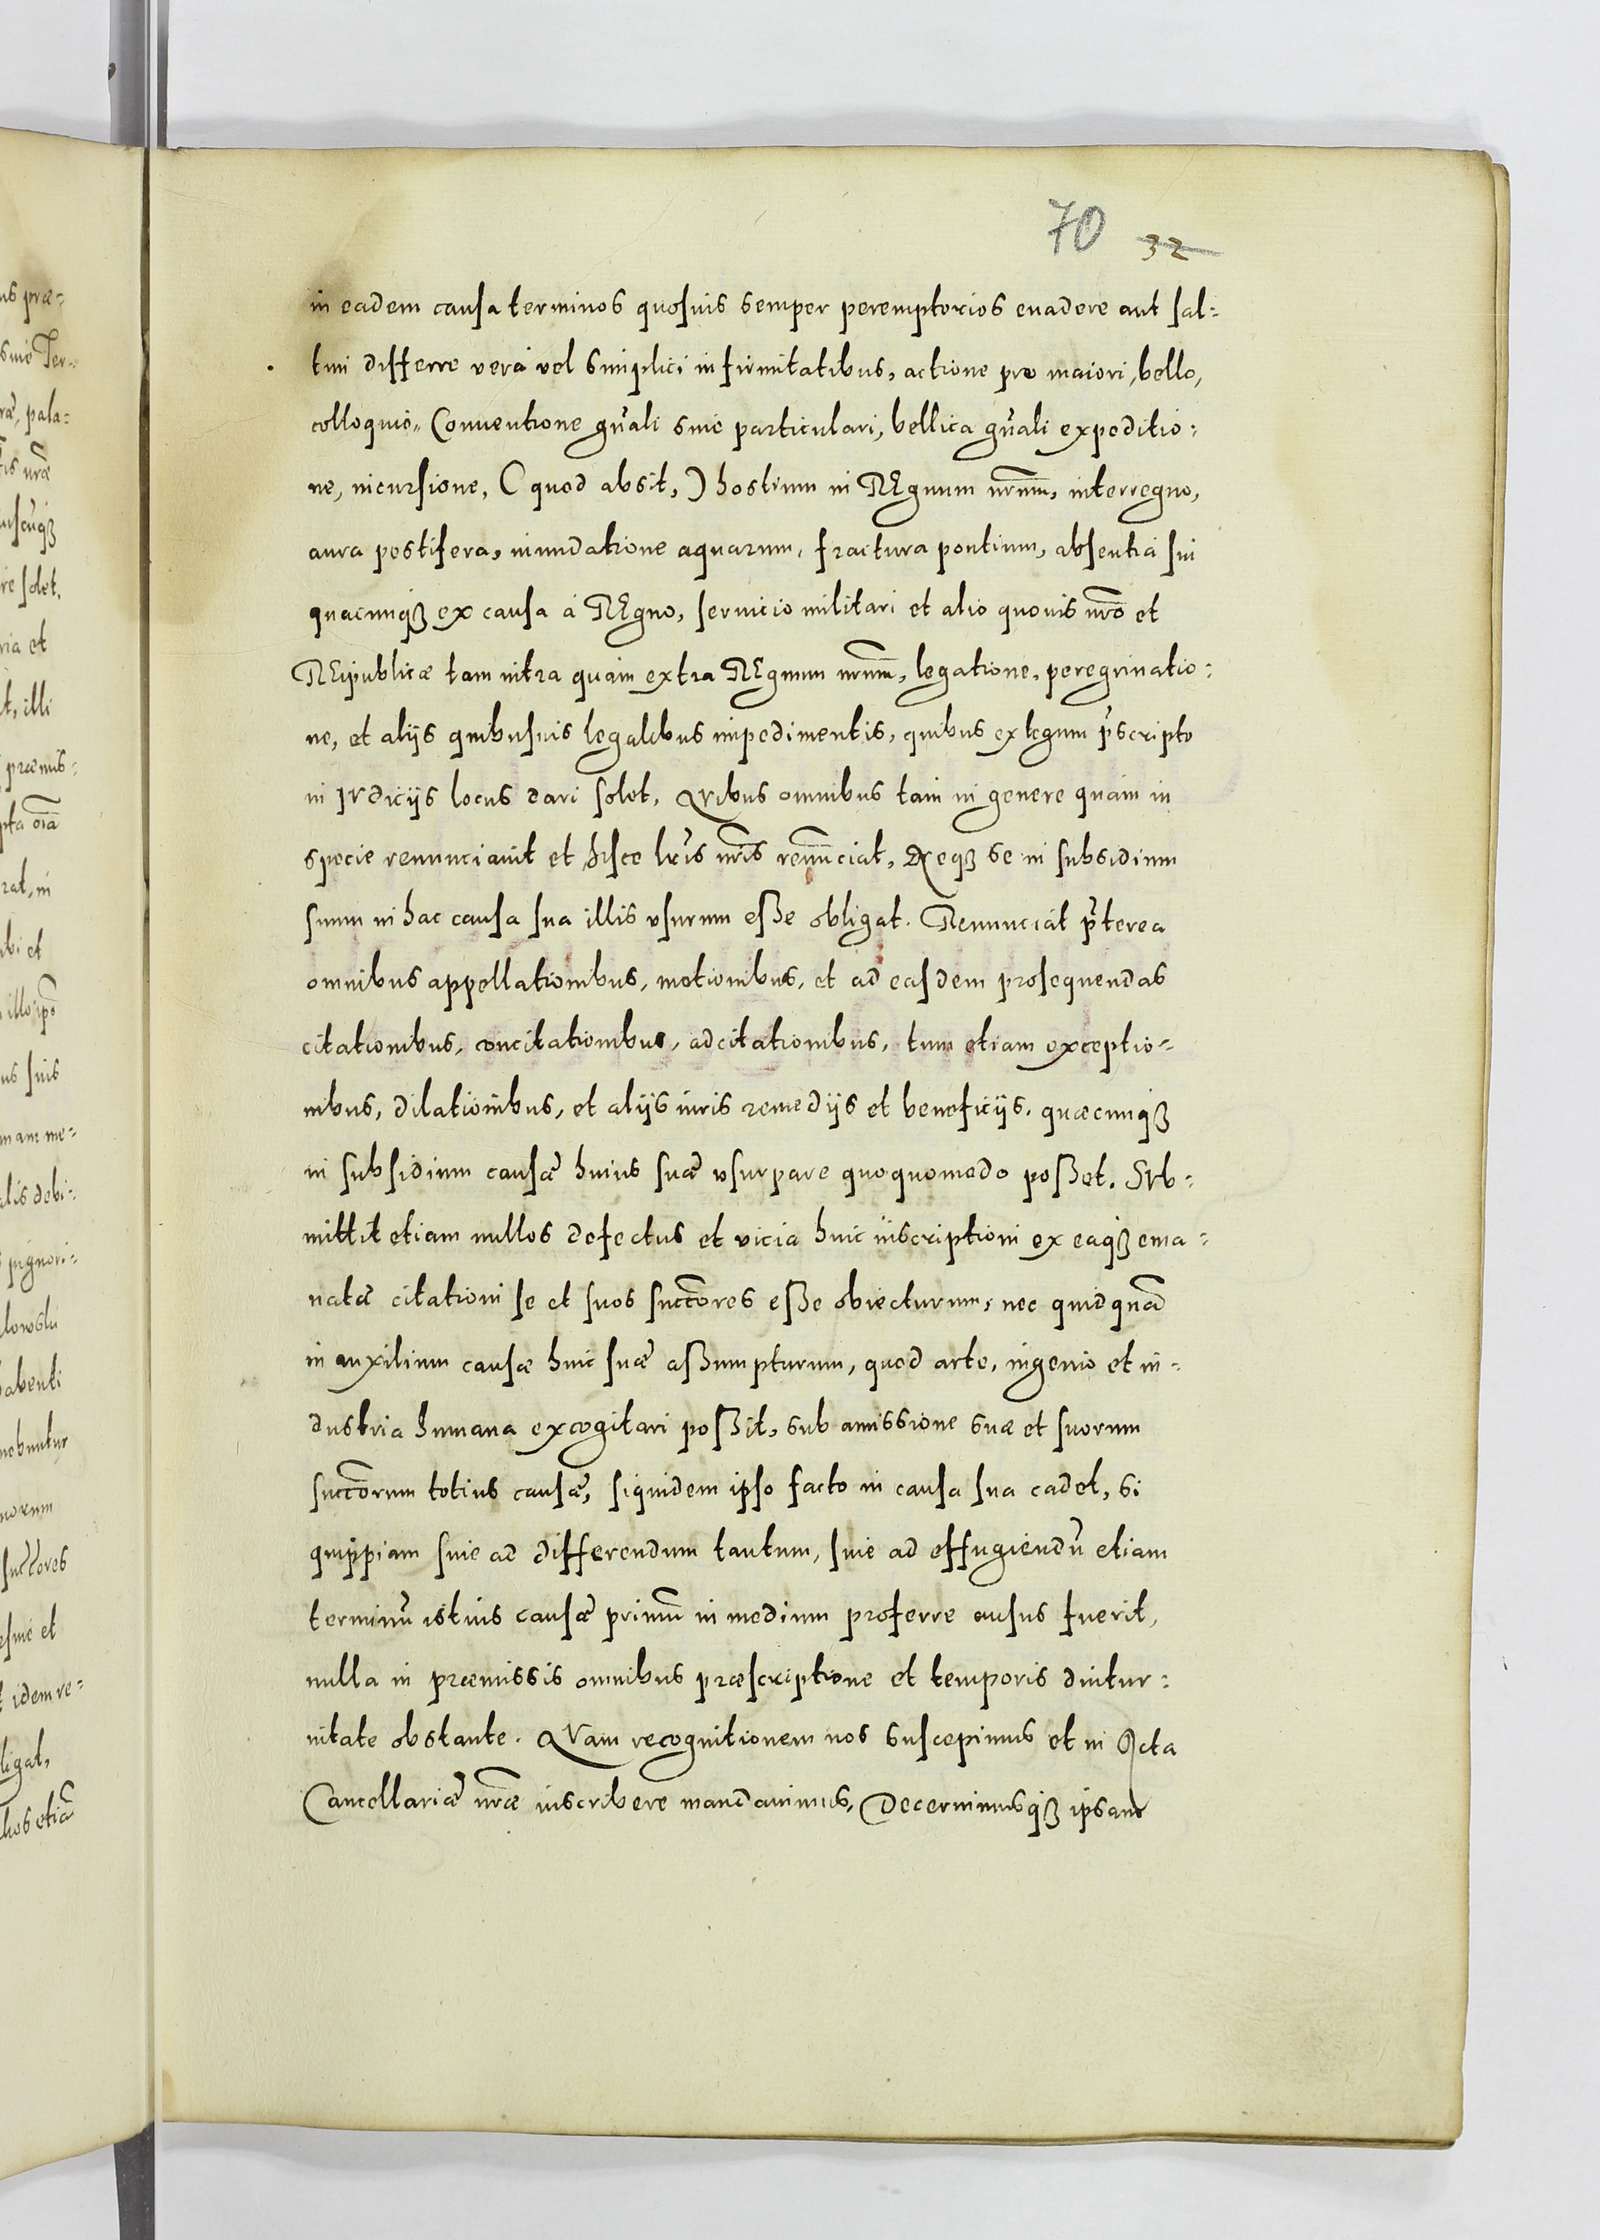 70 32
in eadem causa terminos quosuis semper peremptorios euadere aut sal-
tim differre vera vel simplici infirmitatibus, actione pro maiori, bello,
colloquio, Conuentione gñali siue particulari, bellica gñali expeditio-
ne, incursione, (quod absit,) hostium in REgnum nrum, interregno,
aura pestifera, inundatione aquarum, fractura pontium, absentia sui
quacunqȝ ex causa á REgno, seruicio militari et alio quouis nro et
REipublicæ tam intra quam extra REgnum nrum, legatione, peregrinatio-
ne, et alijs quibusuis legalibus impedimentis, quibus ex legum pscripto
in IVdicijs locus dari solet. QVibus omnibus tam in genere quam in
specie renunciauit et hisce lris nris renunciat, Neqȝ se in subsidium
suum in hac causa sua illis vsurum eße obligat. Renunciat pterea
omnibus appellationibus, motionibus, et ad easdem prosequendas
citationibus, concitationibus, adcitationibus, tum etiam exceptio-
nibus, dilationibus, et alijs iuris remedijs et beneficijs, quæcunqȝ
in subsidium causæ huius suæ vsurpare quoquomodo poßet. SVb-
mittit etiam nullos defectus et vicia huic inscriptioni ex eaqȝ ema-
natæ citationi se et suos succores eße obiecturum, nec quidquã
in auxilium causæ huic suæ aßumpturum, quod arte, ingenio et in-
dustria humana excogitari poßit, sub amissione suæ et suorum
succorum totius causæ, siquidem ipso facto in causa sua cadet, si
quippiam siue ad differendum tantum, siue ad effugiendũ etiam
terminũ istius causæ primũ in medium proferre ausus fuerit,
nulla in præmissis omnibus præscriptione et temporis diutur-
nitate obstante. QVam recognitionem nos suscepimus et in Acta
Cancellariæ nræ inscribere mandauimus, Decernimusqȝ ipsam